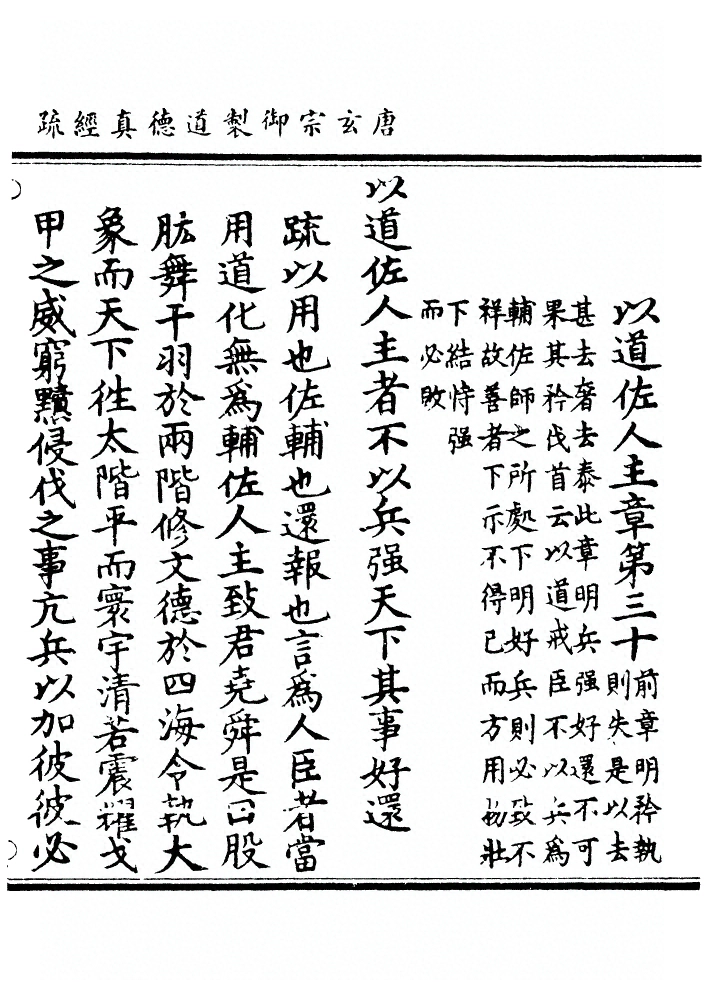 唐玄宗御製道德真經疏
以道佐人主章第三十
前章明矜執
則失是以去
甚去奢去泰此章明兵强好還不可
果其矜伐首云以道戒臣不以兵為
輔佐師之所處下明好兵則必致不
祥故善者下示不得已而方用物壯
下結恃强
而必敗
以道佐人主者不以兵强天下其事好還
疏以用也佐輔也還報也言為人臣者當
用道化無為輔佐人主致君堯舜是曰股
肱舞干羽於兩階修文德於四海令執大
象而天下徃太階平而寰宇清若震耀戈
甲之威窮黷侵伐之事亢兵以加彼彼必